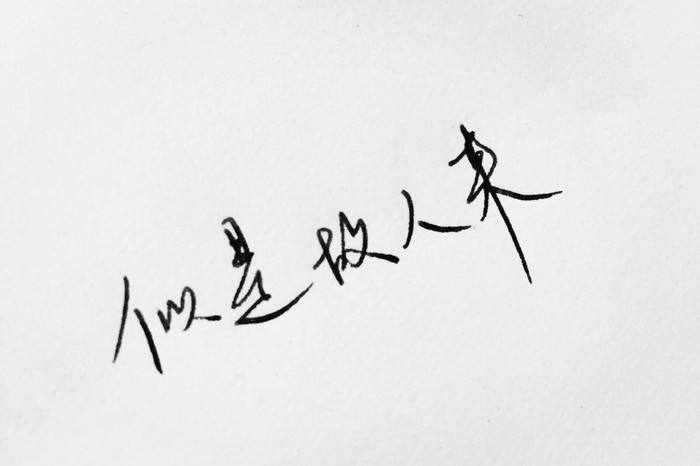 似是故人来